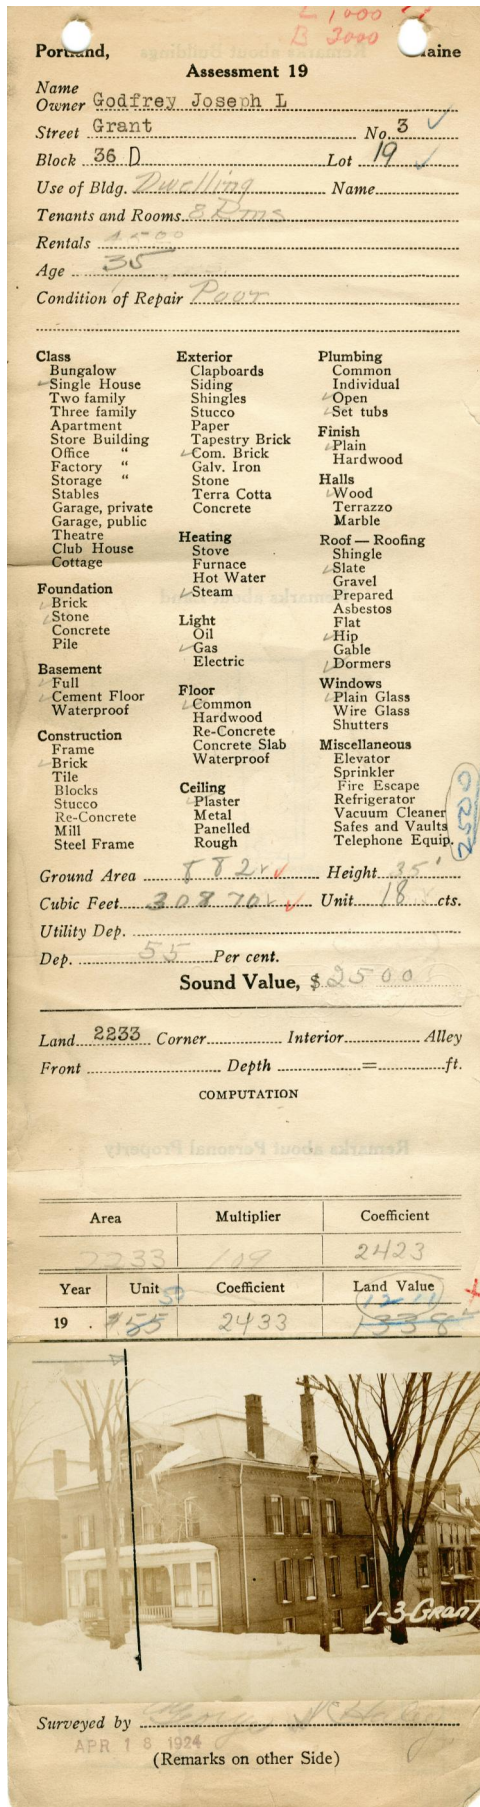 L 1000
B 3000
Portland, Maine
Assessment 19
Name
Owner Godfrey Joseph L
Street Grant No. 3
Block 36 D Lot 19
Use of Bldg. Dwelling Name
Tenants and Rooms 8 Rms
Rentals
Age 35
Condition of Repair Poor
Class
Bungalow
Single House
Two family
Three family
Apartment
Store Building
Office "
Factory "
Storage "
Stables
Garage, private
Garage, public
Theatre
Club House
Cottage
Foundation
Brick
Stone
Concrete
Pile
Basement
Full
Cement Floor
Waterproof
Construction
Frame
Brick
Tile
Blocks
Stucco
Re-Concrete
Mill
Steel Frame
Exterior
Clapboards
Siding
Shingles
Stucco
Paper
Tapestry Brick
Com. Brick
Galv. Iron
Stone
Terra Cotta
Concrete
Heating
Stove
Furnace
Hot Water
Steam
Light
Oil
Gas
Electric
Floor
Common
Hardwood
Re-Concrete
Concrete Slab
Waterproof
Ceiling
Plaster
Metal
Panelled
Rough
Plumbing
Common
Individual
Open
Set tubs
Finish
Plain
Hardwood
Halls
Wood
Terrazzo
Marble
Roof — Roofing
Shingle
Slate
Gravel
Prepared
Asbestos
Flat
Hip
Gable
Dormers
Windows
Plain Glass
Wire Glass
Shutters
Miscellaneous
Elevator
Sprinkler
Fire Escape
Refrigerator
Vacuum Cleaner
Safes and Vaults
Telephone Equip.
2500
Ground Area 882 Height 35'
Cubic Feet 30870 Unit 18 cts.
Utility Dep.
Dep. 55 Per cent.
Sound Value, $ 2500
Land 2233 Corner Interior Alley
Front Depth = ft.
COMPUTATION
Remarks about Personal Property
Area Multiplier Coefficient
2233 109 2423
Year Unit Coefficient Land Value
50 1211
19 . $.55 2433 1338
1-3-Grant
Surveyed by
APR 18 1924
(Remarks on other Side)